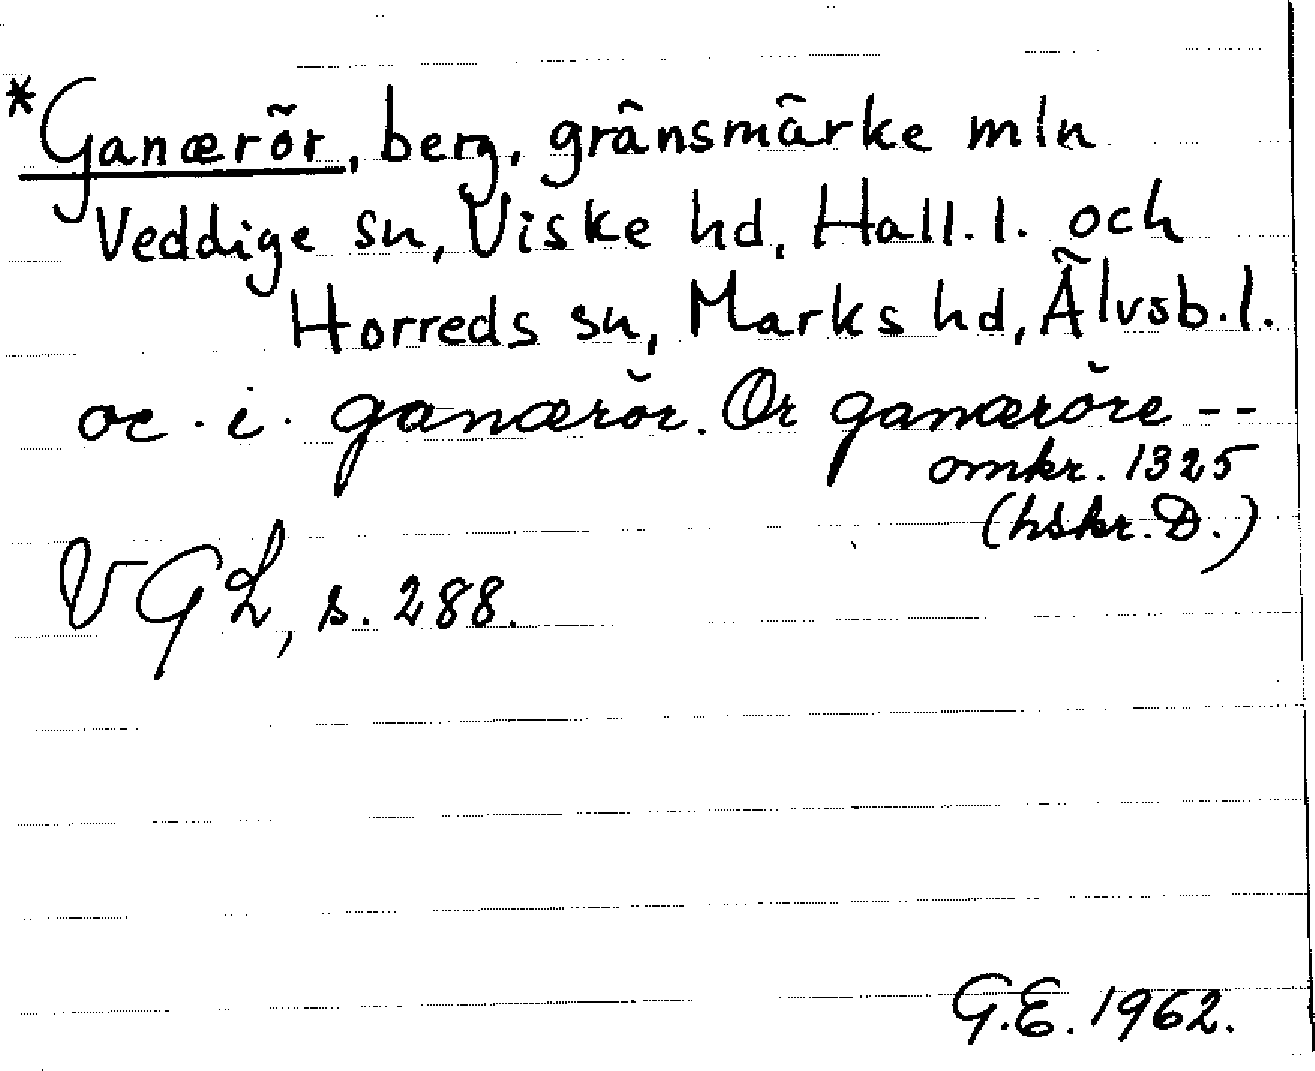 *Ganærör, berg, gränsmärke mln
Veddige sn, Viske hd, Hall.l. och
Horreds sn, Marks hd, Älvsb.l.
oc. i. ganærör. Or ganæröre --
omkr. 1325
(hskr. D.)
VGL, s. 288.
G.E. 1962.